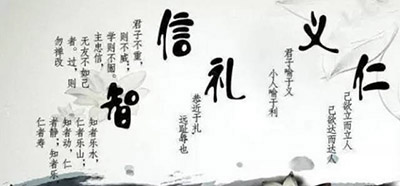 仁
己欲立而立人
己欲达而达人
义
君子喻于义
小人喻于利
礼
恭近于扎
远耻辱也
信
君子不重，
则不威；
学则不固。
主忠信，
无友不如己
者。过，则
勿禅改
智
知者乐水，
仁者乐山；
知者动，仁
者静；知者乐
仁者寿